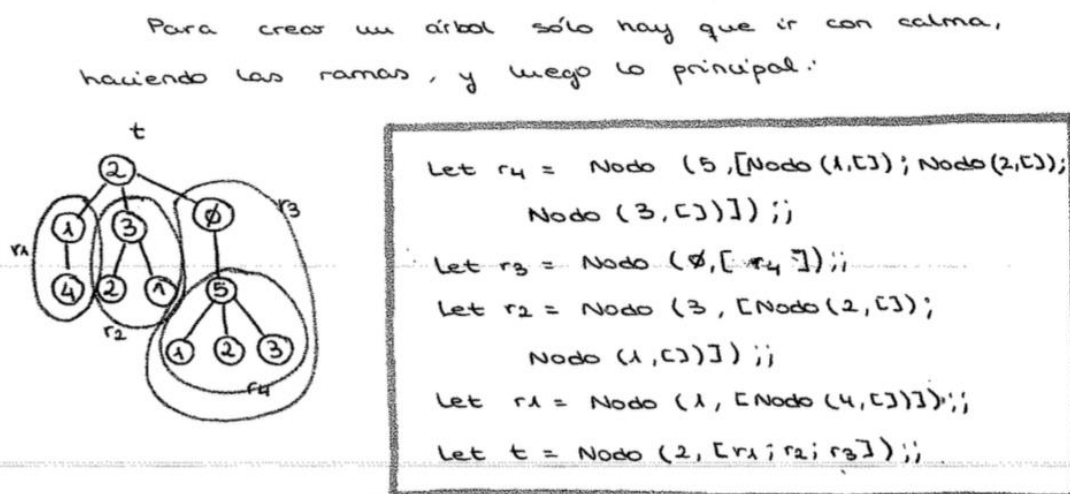 Para crear un árbol sólo hay que ir con calma,
haciendo las ramas, y luego lo principal:
t
2
1 3 ∅ r3
r1
4 2 1 5
r2
1 2 3
r4
Let r4 = Nodo (5,[Nodo(1,[]); Nodo(2,[]);
Nodo (3,[])]) ;;
Let r3 = Nodo (∅,[ r4 ]);;
Let r2 = Nodo (3, [Nodo(2,[]);
Nodo (1,[])]) ;;
Let r1 = Nodo (1, [Nodo (4,[])]);;
Let t = Nodo (2, [r1; r2; r3]);;